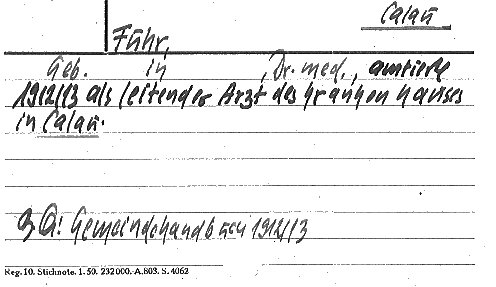 Calau
Führ,
Geb. in , Dr. med., amtierte
1912/13 als leitender Arzt des Krankenhauses
in Calau.
Q: Gemeindehandbuch 1912/13
Reg. 10. Stichnote. 1. 50. 232000. A. 803. S. 4062